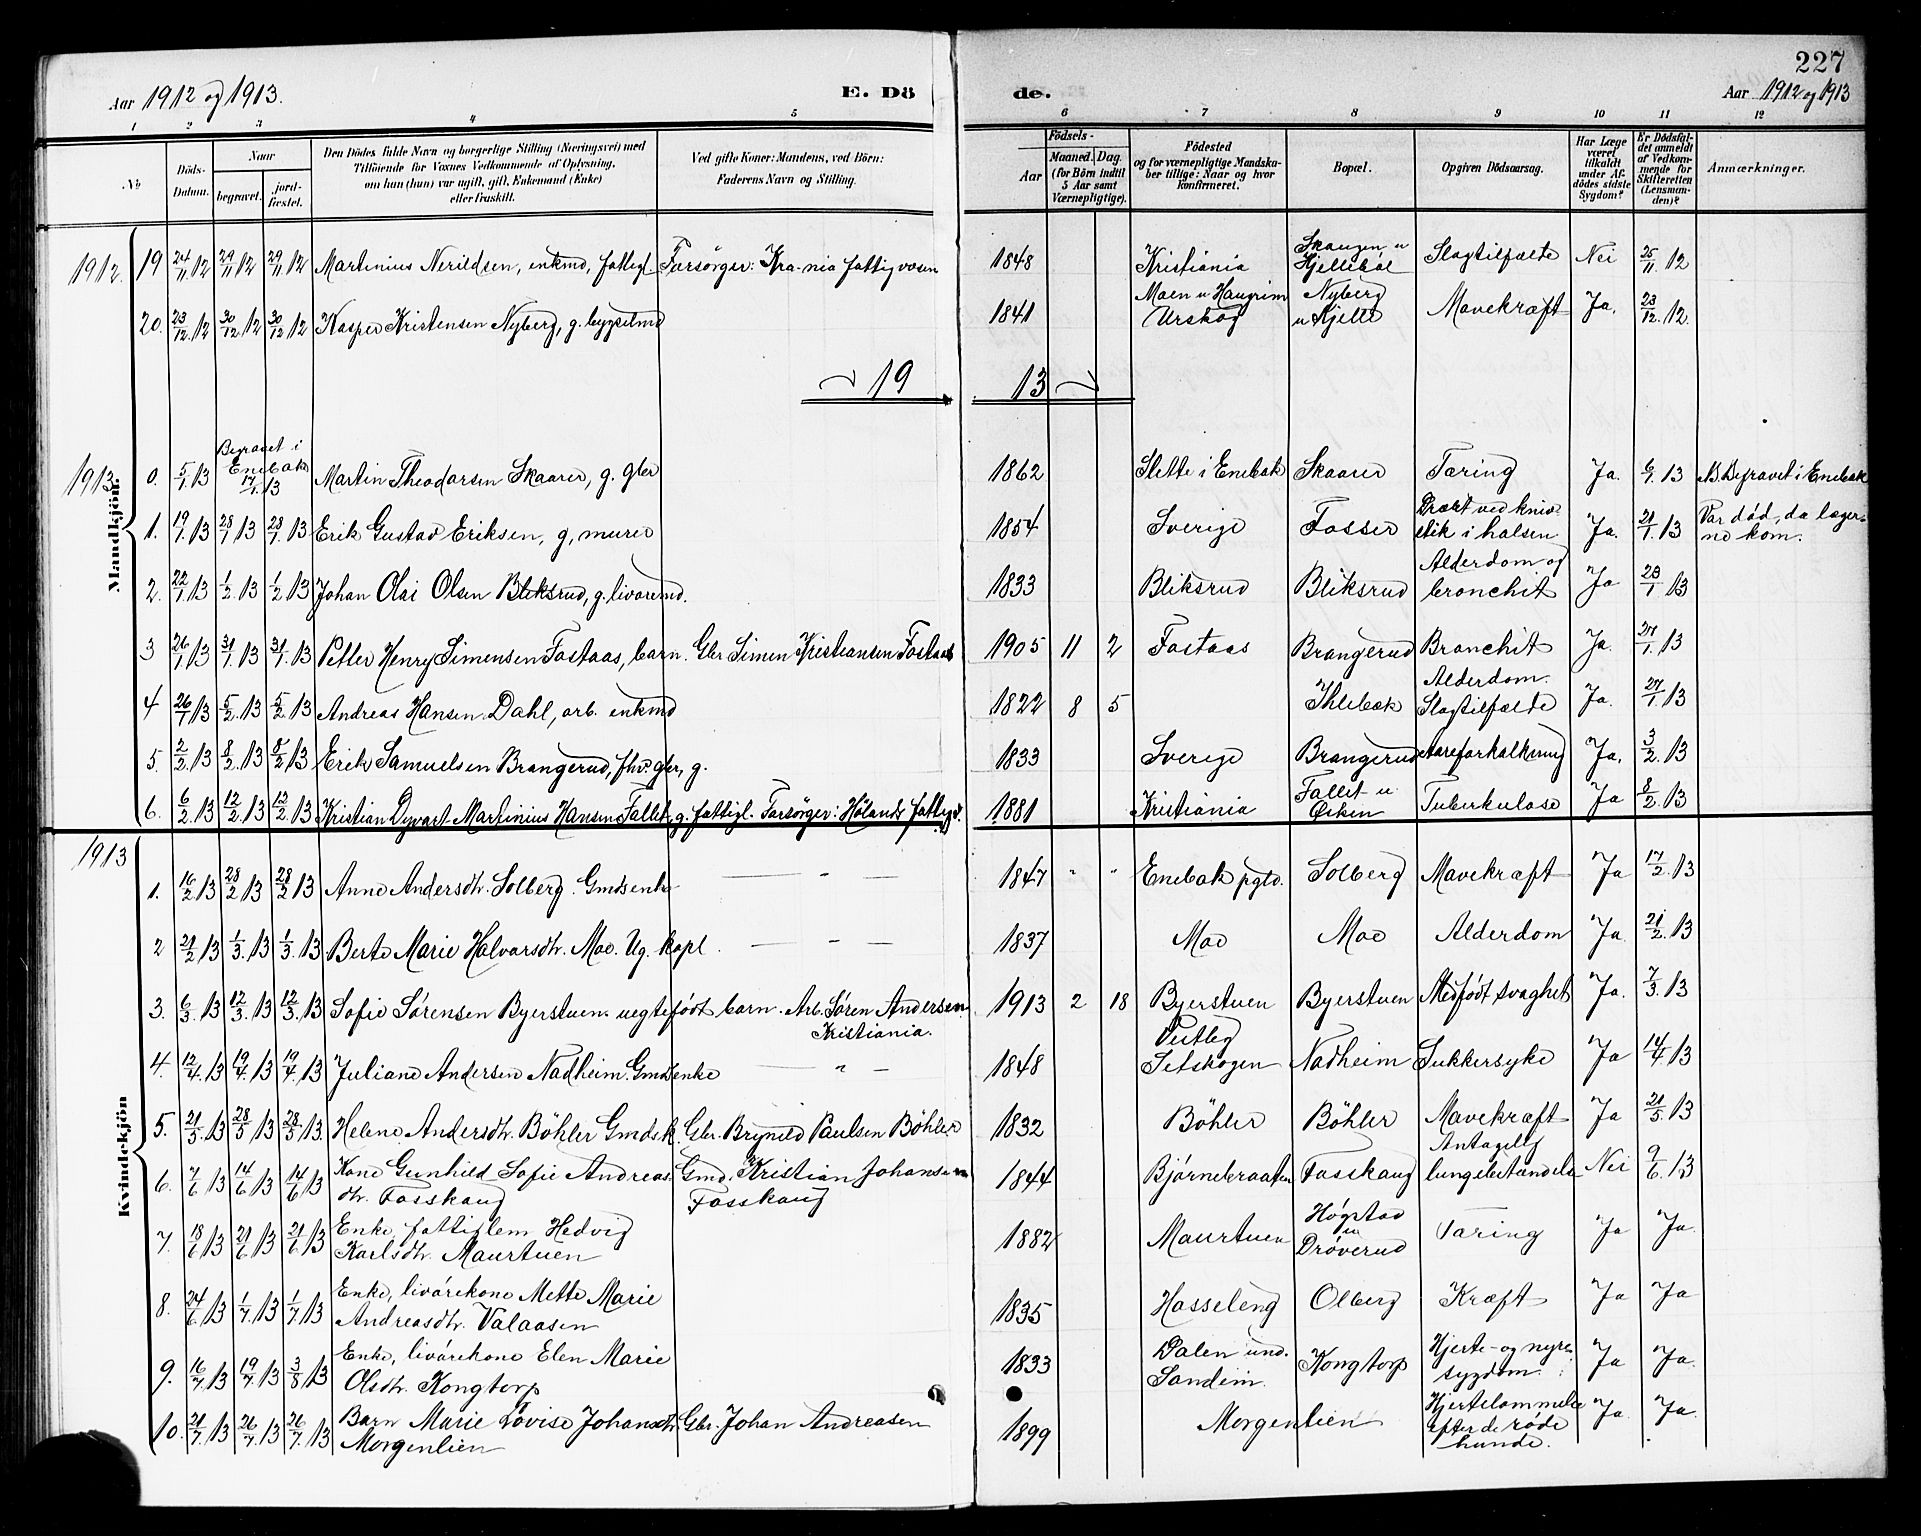 227
Aar 1912 og 1913. E. Dö de. Aar 1912 og 1913
1 2 3 4 5 6 7 8 9 10 11 12
No
Döds-Datum.
Naar
begravet.
jord-fæstet.
Den Dödes fulde Navn og borgerlige Stilling (Næringsvei) med
Tilföiende for Voxnes Vedkommende af Oplysning,
om han (hun) var ugift, gift, Enkemand (Enke)
eller fraskilt.
Ved gifte Koner: Mandens, ved Börn:
Faderens Navn og Stilling.
Födsels-
Aar
Maaned. Dag.
(for Börn indtil
5 Aar samt
Værnepligtige).
Födested
og for værnepligtige Mandska-
ber tillige: Naar og hvor
konfirmeret.
Bopæl.
Opgiven Dödsaarsag.
Har Læge
været
tilkaldt
under Af-
dödes sidste
Sygdom?
Er Dödsfal-
det anmeldt
af Vedkom-
mende for
Skifteretten
(Lensman-
den)?
Anmærkninger.
Mandkjön.
1912. 19 24/11 12 29/11 12 29/11 12 Martinius Nerildsen, enkmd, fattigl. Forsørger: Kra-nia fattigvæsen 1848 Kristiania Skaugen u Hjellebøl Slagtilfælde Nei 25/11 12
20. 23/12 12 30/12 12 30/12 12 Kasper Kristensen Nyberg, g. bygselmd 1841 Moen u Haugrim Urskog Nyberg u Hjelle Mavekræft Ja. 23/12 12.
19 13
1913. 0. 5/1 13 Begravet i Enebak 17/1 13 Martin Theodorsen Skaarer, g. gbr 1862 Slette i Enebak Skaarer Tæring Ja. 6/1 13 N.B. Begravet i Enebak
1. 19/1 13 28/1 13 28/1 13 Erik Gustav Eriksen, g, murer 1854 Sverige Fosser Dræbt ved kniv-stik i halsen Ja. 21/1 13 Var død, da læger-ne kom.
2. 22/1 13 1/2 13 1/2 13 Johan Olai Olsen Bliksrud, g. livøremd. 1833 Bliksrud Bliksrud Alderdom og bronchit Ja 23/1 13
3 26/1 13 31/1 13 31/1 13 Petter Henry Simensen Fostaas, barn. Gbr Simen Kristiansen Fostaas 1905 11 2 Fostaas Brangerud Bronchit Ja. 27/1 13
4 26/1 13 5/2 13 5/2 13 Andreas Hansen Dahl, arb. enkmd 1822 8 5 Ihlebæk Alderdom. Slagtilfælde Ja. 27/1 13
5. 2/2 13 8/2 13 8/2 13 Erik Samuelsen Brangerud, fhv. gbr, g. 1833 Sverige Brangerud Aareforkalkning Ja. 3/2 13
6. 6/2 13 12/2 13 12/2 13 Kristian Dyvart Martinius Hansen Fallet, g. fattigl. Forsørger: Hølands fattigv. 1881 Kristiania Fallet u. Tuberkulose Ja 8/2 13
Kvindekjön
1913 1. 16/2 13 28/2 13 28/2 13 Anne Andersdtr. Solberg. Gmdsenke — " — 1847 " " Enebak pgld. Solberg Mavekræft Ja 17/2 13
2 21/2 13 1/3 13 1/3 13 Berte Marie Halvorsdtr. Moe. Ug. kapl. — " — 1837 Moe Moe Alderdom Ja 21/2 13
3. 6/3 13 12/3 13 12/3 13 Sofie Sørensen Byerstuen. uegtefødt barn. Arb. Søren Andersen. Kristiania. 1913 2 18 Byerstuen Byerstuen Medfødt svaghet Ja. 7/3 13
4. 12/4 13 19/4 13 19/4 13 Juliane Andersen Nadheim. Gmdsenke — " — 1848 Setskogen Nadheim Sukkersyke Ja 14/4 13
5. 21/5 13 28/5 13 28/5 13. Helene Andersdtr. Böhler Gmdsk. Gbr. Brynild Paulsen Böhler 1832 Böhler Böhler Mavekræft Ja 21/5 13
6. 7/6 13 14/6 13 14/6 13 Kone Gunhild Sofie Andreas-dtr. Fosskaug Gmd. Kristian Johansen Fosskaug 1844 Bjørnebraaten Fosskaug Antagelig lungebetændels Nei 9/6 13
7. 18/6 13 21/6 13 21/6 13 Enke, fattiglem Hedvig Karlsdtr. Maurtuen 1882 Maurtuen Høgstad u Drøverud Tæring Ja Ja.
8. 24/6 13 1/7 13 1/7 13 Enke, livørekone Mette Marie Andreasdtr. Valaasen 1835 Hasseleng Olberg Kræft Ja Ja
9. 16/7 13 19/7 13 3/8 13 Enke, livørekone Elen Marie Olsdtr. Kongtorp 1833 Dalen und. Sandem. Kongtorp Hjerte- og nyre-sygdom. Ja Ja.
10. 21/7 13 26/7 13 26/7 13 Barn Marie Lovise Johansdtr. Morgenlien Gbr. Johan Andreasen 1899 Morgenlien Hjertelammelse efter de røde hunde. Ja Ja.